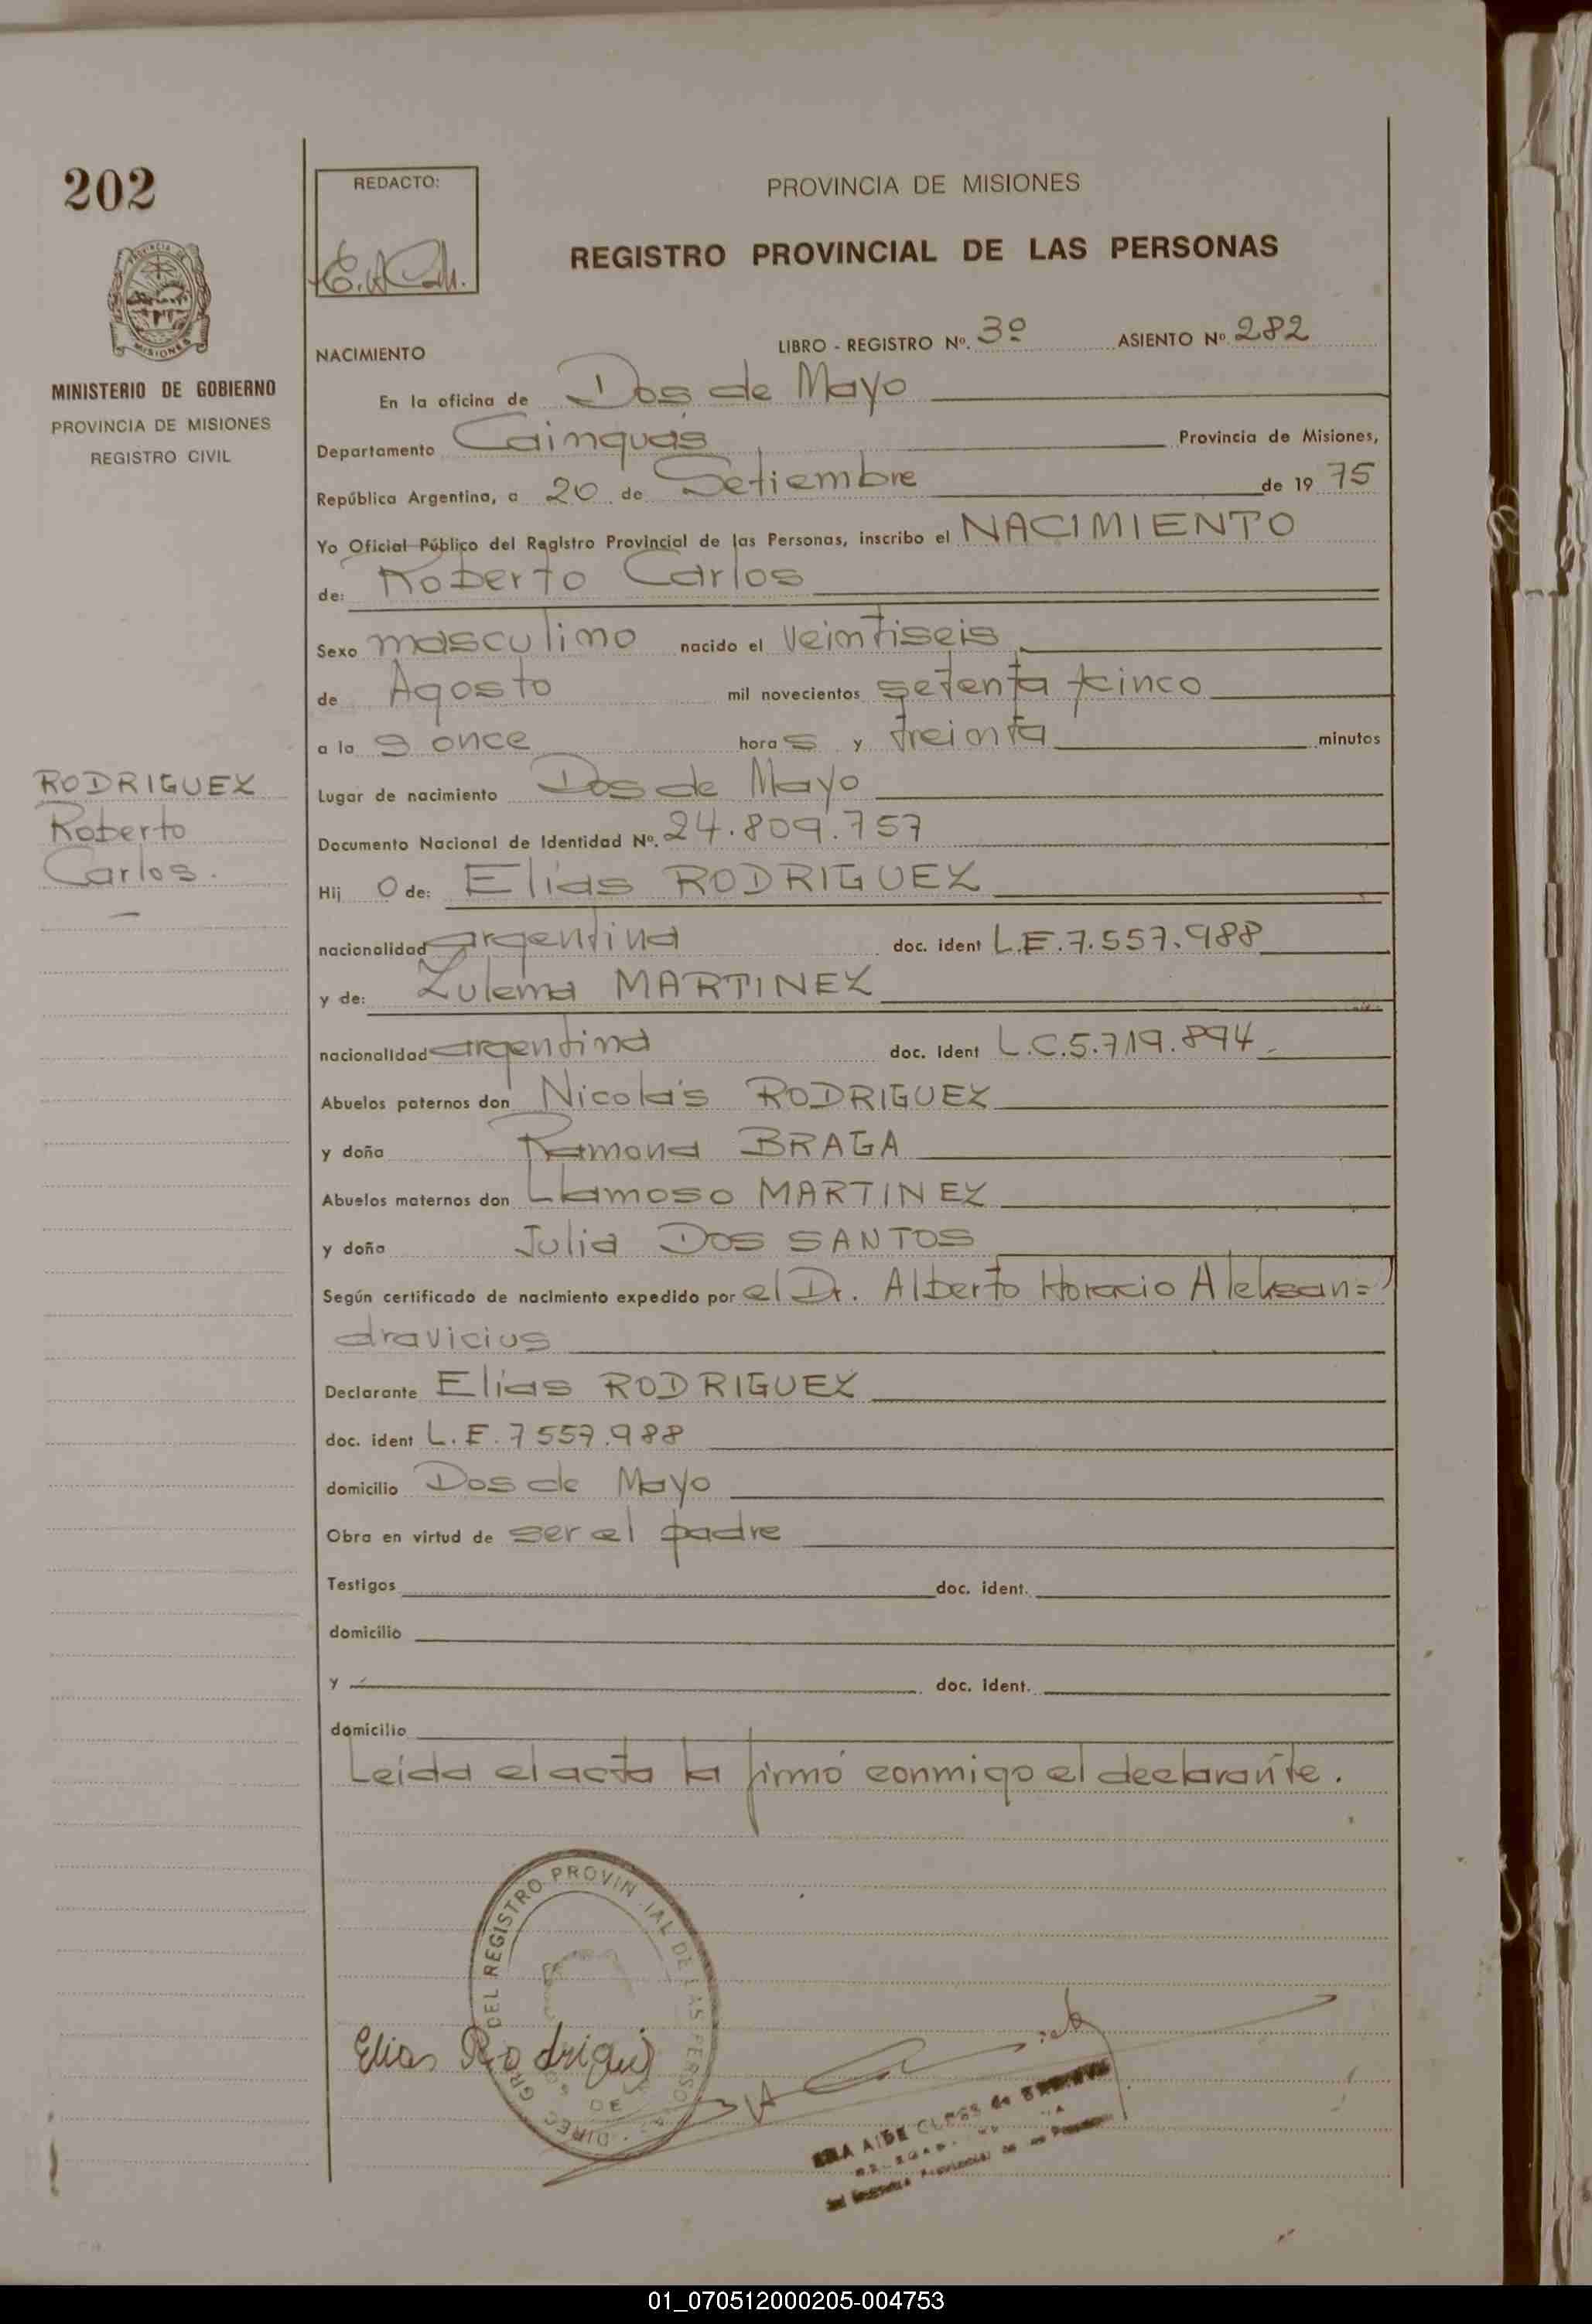 202
REDACTO:
PROVINCIA DE MISIONES
REGISTRO PROVINCIAL DE LAS PERSONAS
MINISTERIO DE GOBIERNO
PROVINCIA DE MISIONES
REGISTRO CIVIL
NACIMIENTO LIBRO - REGISTRO Nº. 3º ASIENTO Nº 282
En la oficina de Dos de Mayo
Departamento Cainguás Provincia de Misiones,
República Argentina, a 20 de Setiembre de 19 75
Yo Oficial Público del Registro Provincial de las Personas, inscribo el NACIMIENTO
de: Roberto Carlos
Sexo masculino nacido el veintiseis
de Agosto mil novecientos setenta y cinco
a la s once hora s y treinta minutos
RODRIGUEZ
Roberto
Carlos.
Lugar de nacimiento Dos de Mayo
Documento Nacional de Identidad Nº. 24.809.757
Hij o de: Elías RODRIGUEZ
nacionalidad argentina doc. ident L.E.7.557.988
y de: Zulema MARTINEZ
nacionalidad argentina doc. ident L.C.5.719.894
Abuelos paternos don Nicolás RODRIGUEZ
y doña Ramona BRAGA
Abuelos maternos don Llamoso MARTINEZ
y doña Julia DOS SANTOS
Según certificado de nacimiento expedido por el Dr. Alberto Horacio Aleksan=
dravicius
Declarante Elías RODRIGUEZ
doc. ident L.E. 7 557.988
domicilio Dos de Mayo
Obra en virtud de ser el padre
Testigos doc. ident.
domicilio
y doc. ident.
domicilio
Leída el acta la firmó conmigo el declarante.
DEL REGISTRO PROVIN IAL DE LAS PERSO
DIREC GR
DE
Elias Rodrigu
01_070512000205-004753